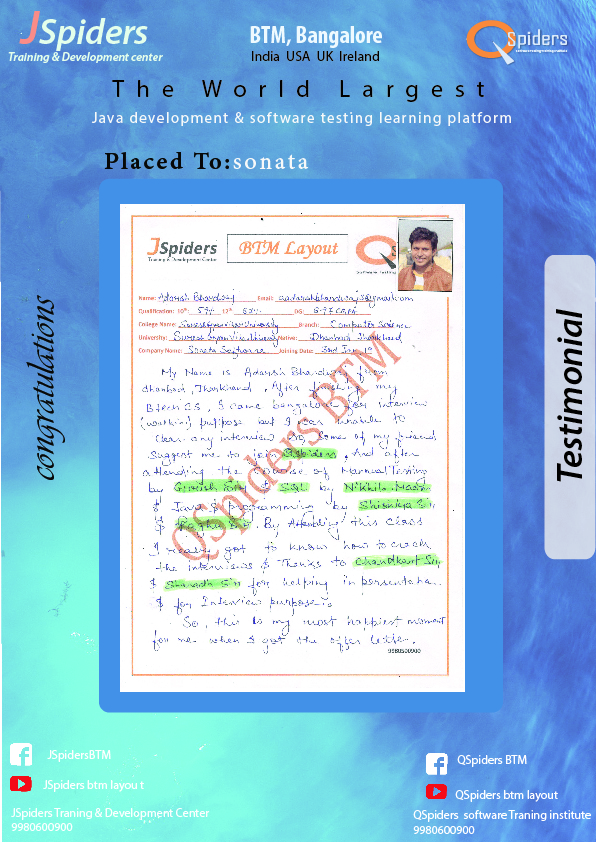 JSpiders
Training & Development center
BTM, Bangalore
India USA UK Ireland
QSpiders
The World Largest
Java development & software testing learning platform
Placed To:sonata
congratulations
Testimonial
JSpiders
Training & Development Center
BTM Layout
Software Testing
Name: Adarsh Bhardwaj Email:
Qualification: 10th: 59% 12th DG:
College Name: Branch: Computer Science
University: Native: Dhanbad Jharkhand
Company Name: Sonata Software Joining Date:
My Name is Adarsh Bhardwaj from
dhanbad, Jharkhand, After finishing my
Btech CS, I come bangalore for interview
(walkin) purpose but I can unable to
clear any interview. So, Some of my friend
suggest me to join QSpiders, And after
attending the Course of Manual Testing
by Girish Sir & SQL by Nikhila Mam
& Java & programming by Sir
& Sir. By Attending this class
I really got to know how to crack
the interviews & Thanks to Chandkant Sir,
& Sharath Sir for helping in
& for Interview purpose.
So, this is my most happiest moment
for me when I got the offer letter.
9980600900
QSpiders BTM
JSpidersBTM
JSpiders btm layou t
JSpiders Traning & Development Center
9980600900
QSpiders BTM
QSpiders btm layout
QSpiders software Traning institute
9980600900